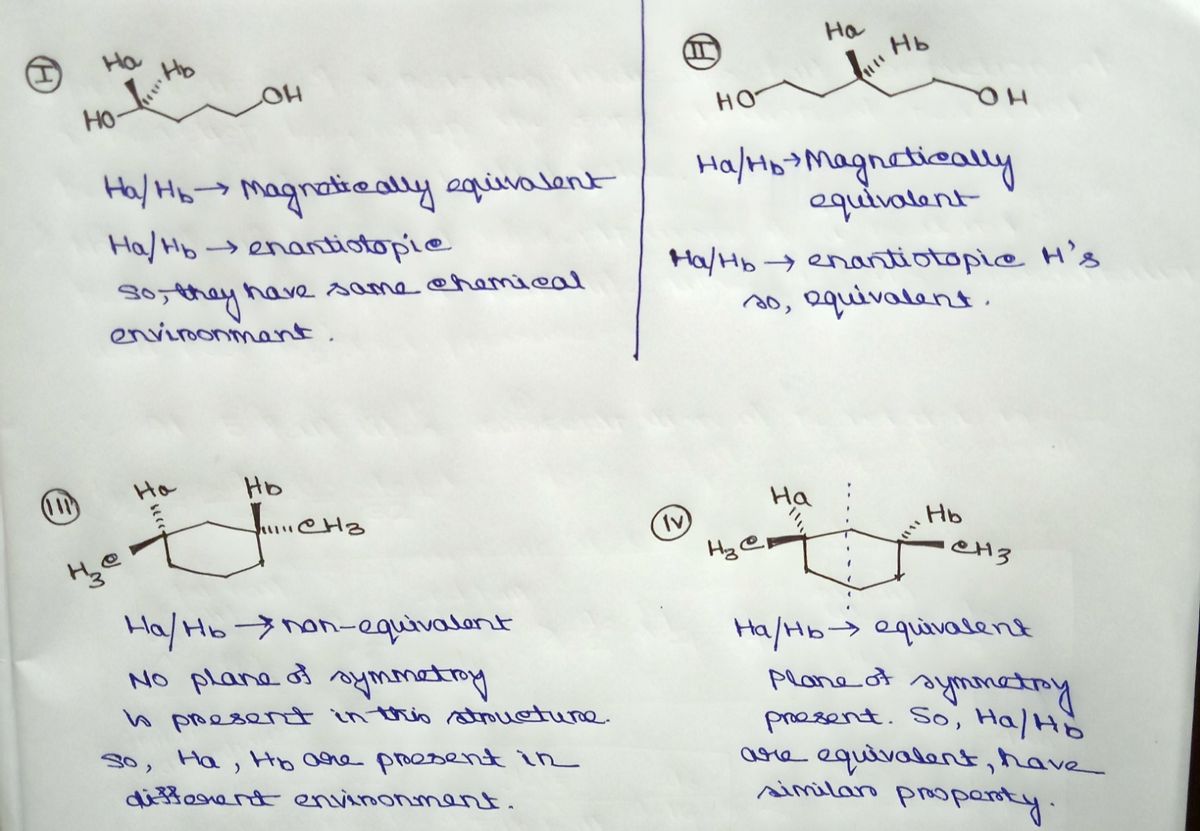 I
Ha Hb
HO OH
Ha/Hb → Magnetically equivalent
Ha/Hb → enantiotopic
so, they have same chemical
environment.
II
Ha Hb
HO OH
Ha/Hb → Magnetically
equivalent
Ha/Hb → enantiotopic H's
so, equivalent.
III
Ha Hb
H3C CH3
Ha/Hb → non-equivalent
No plane of symmetry
is present in this structure.
so, Ha, Hb are present in
different environment.
IV
Ha Hb
H3C CH3
Ha/Hb → equivalent
Plane of symmetry
present. So, Ha/Hb
are equivalent, have
similar property.